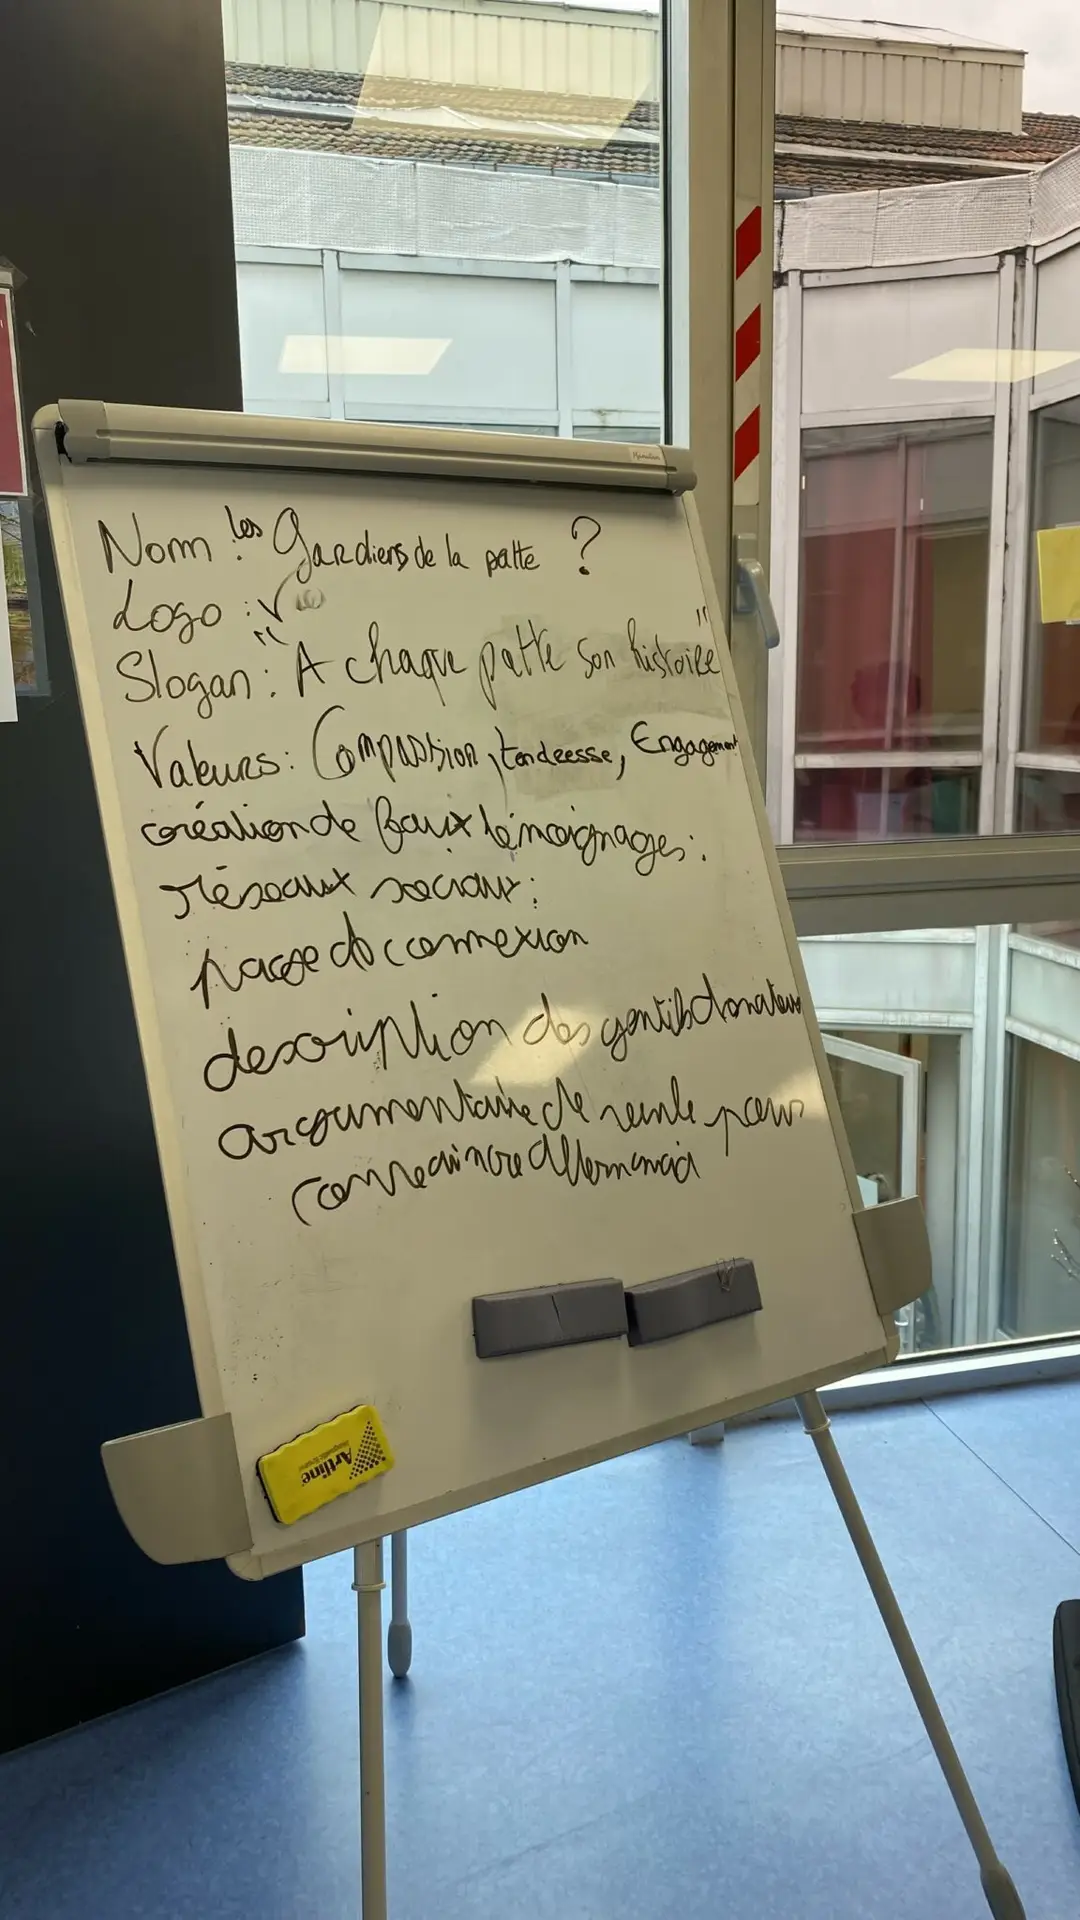 Nom : les Gardiens de la patte ?
Logo : V
Slogan : "A chaque patte son histoire"
Valeurs : Compassion, tendresse, Engagement
création de faux témoignages :
réseaux sociaux :
page de connexion
description des gentils donateurs
argumentaire de vente pour
convaincre
Artline